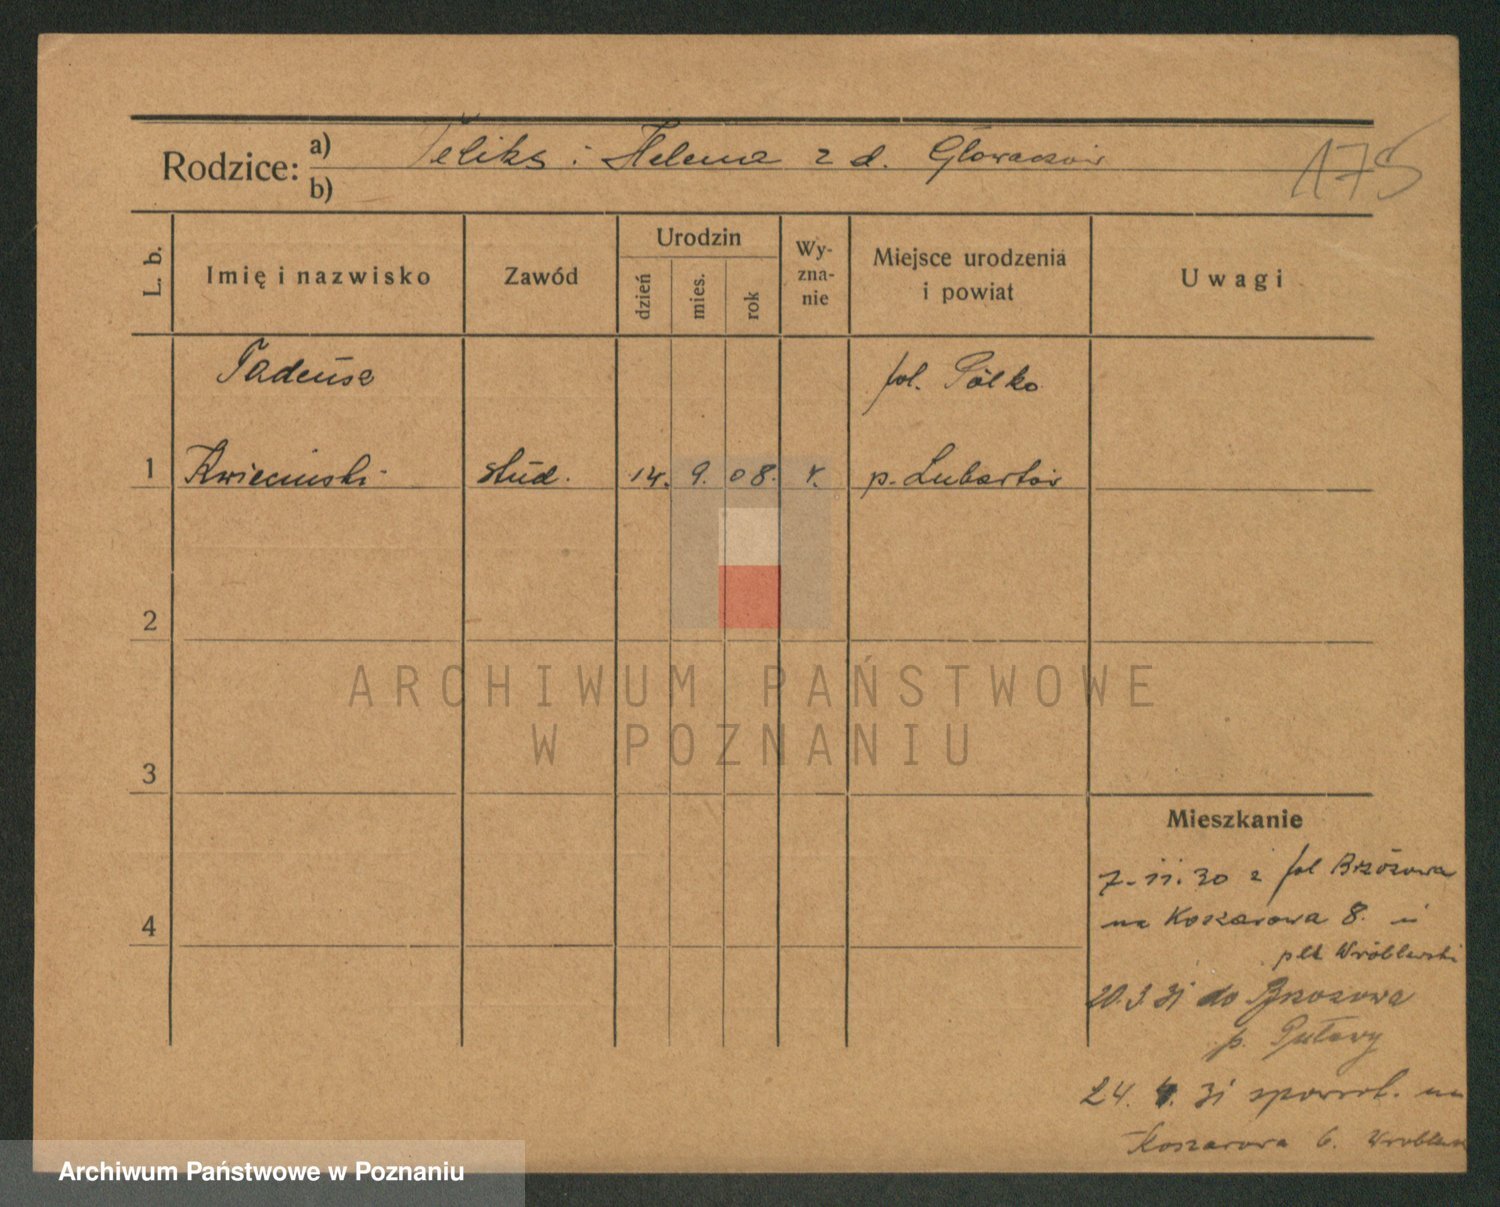 Rodzice: a) Feliks i Helena z d. Głowaczów
b)
175
L. b.
Imię i nazwisko
Zawód
Urodzin
dzień
mies.
rok
Wy-
zna-
nie
Miejsce urodzenia
i powiat
Uwagi
Tadeusz
fol. Pólko
1 Kwieciński stud. 14. 9. 08. r. p. Lubartów
2
3
4
ARCHIWUM PAŃSTWOWE
W POZNANIU
Mieszkanie
7.11.30 z fol Brzózowa
na Koszarowa 8. u
Wróblewski
20.3 31 do Brzozowa
p. Puławy
24. 4. 31 spowrot. na
Koszarowa 6.
Archiwum Państwowe w Poznaniu